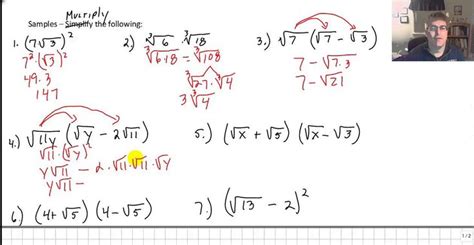 Multiply
Samples – Simplify the following:
1. (7√3)²
7²·(√3)²
49·3
147
2) ³√6 · ³√18
³√6·18 = ³√108
³√27·³√4
3 ³√4
3.) √7 (√7 − √3)
7 − √7·3
7 − √21
4.) √11y (√y − 2√11)
√11·(√y)²
y√11 − 2·√11·√11·√y
y√11 −
5.) (√x + √5) (√x − √3)
6) (4+√5) (4−√5)
7.) (√13 − 2)²
1/2